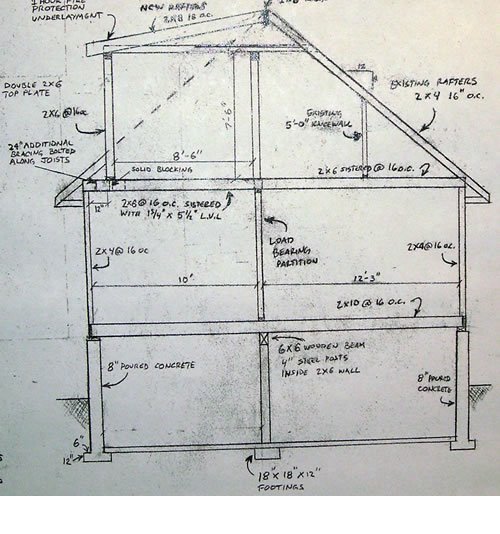 1 HOUR FIRE
PROTECTION
UNDERLAYMENT
NEW RAFTERS
2x8 16 O.C.
16" O.C.
DOUBLE 2x6
TOP PLATE
2x6 @ 16 OC
7'-6"
12
EXISTING RAFTERS
2x4 16" O.C.
EXISTING
5'-0" KNEEWALL
24" ADDITIONAL
BRACING BOLTED
ALONG JOISTS
8'-6"
SOLID BLOCKING
2x6 SISTERED @ 16 O.C.
12"
2x6 @ 16 O.C. SISTERED
WITH 1 3/4" x 5 1/2" L.V.L
LOAD
BEARING
PARTITION
2x4 @ 16 OC
2x4 @ 16 OC.
10'
12'-3"
2x10 @ 16 O.C.
6x6 WOODEN BEAM
4" STEEL POSTS
INSIDE 2x6 WALL
8" POURED CONCRETE
8" POURED
CONCRETE
6"
12"
18" x 18" x 12"
FOOTINGS